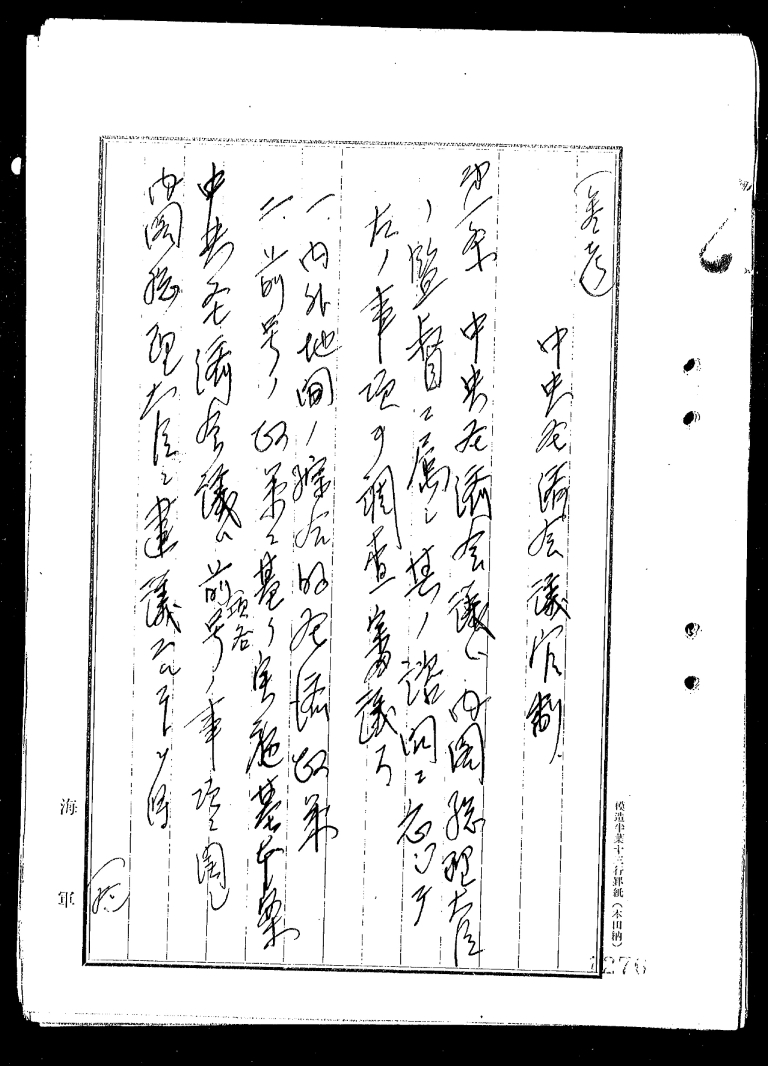 (参考)
中央経済会議官制
第一条 中央経済会議ハ内閣総理大臣
ノ監督ニ属シ其ノ諮問ニ応ジテ
左ノ事項ヲ調査審議ス
一、内外地間ノ綜合的経済政策
二、前号ノ政策ニ基ク実施基本案
中央経済会議ハ前項各号ノ事項ニ関シ
内閣総理大臣ニ建議スルコトヲ得
海軍
模造半葉十三行罫紙(本田納)
1376